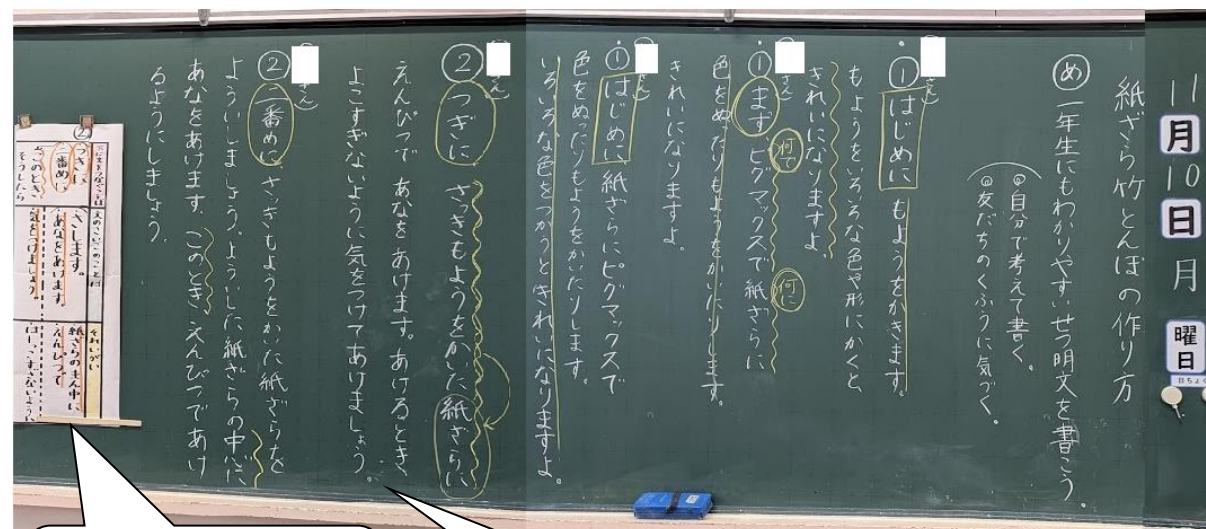 11月10日月曜日
日ちょく
紙ざら竹とんぼの作り方
め 一年生にもわかりやすいせつ明文を書こう。
◎自分で考えて書く。
◎友だちのくふうに気づく。
さん)
① はじめに もようをかきます。
もようをいろいろな色や形にかくと
きれいになりますよ。
さん)
① まず ピグマックスで紙ざらに
何で
何に
色をぬったりもようをかいたりします。
きれいになりますよ。
さん)
① はじめに、紙ざらにピグマックスで
色をぬったりもようをかいたりします。
いろいろな色をつかうときれいになりますよ。
さん)
② つぎに さっきもようをかいた紙ざらに、
えんぴつで あなを あけます。あけるとき、
よこすぎないように気をつけてあけましょう。
さん)
② 二番めに さっきもようをかいた紙ざらを
よういしましょう。よういした紙ざらの中心に
あなをあけます。このとき、えんぴつであけ
るようにしましょう。
②
つぎに
二番めに
このとき
そうしたら
文のさいごのことば
さします。
あなをあけます。
気をつけましょう。
それいがい
紙ざらのまん中に
えんぴつで